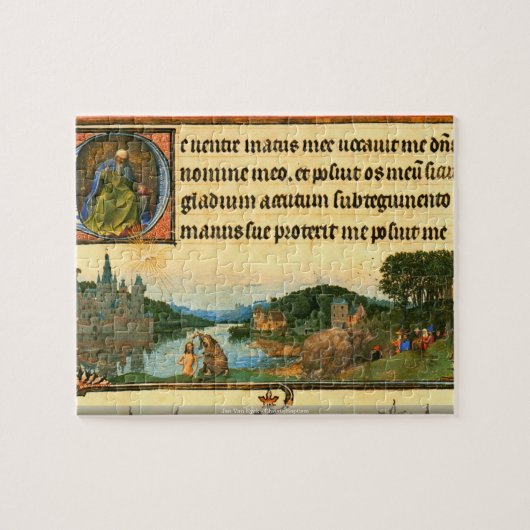 e ventre matris mee vocavit me dñs
nomine meo. et posuit os meũ sicut
gladium accutum subtegumento
manus sue protexit me posuit me
Jan Van Eyck - Christs Baptism